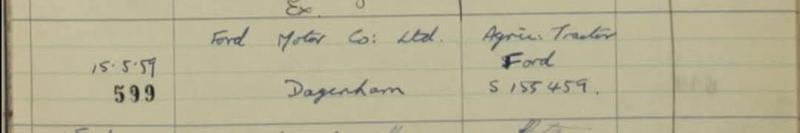 Ex.
Ford Motor Co: Ltd. Agric. Tractor
15·5·59 Ford
599 Dagenham S 155459.